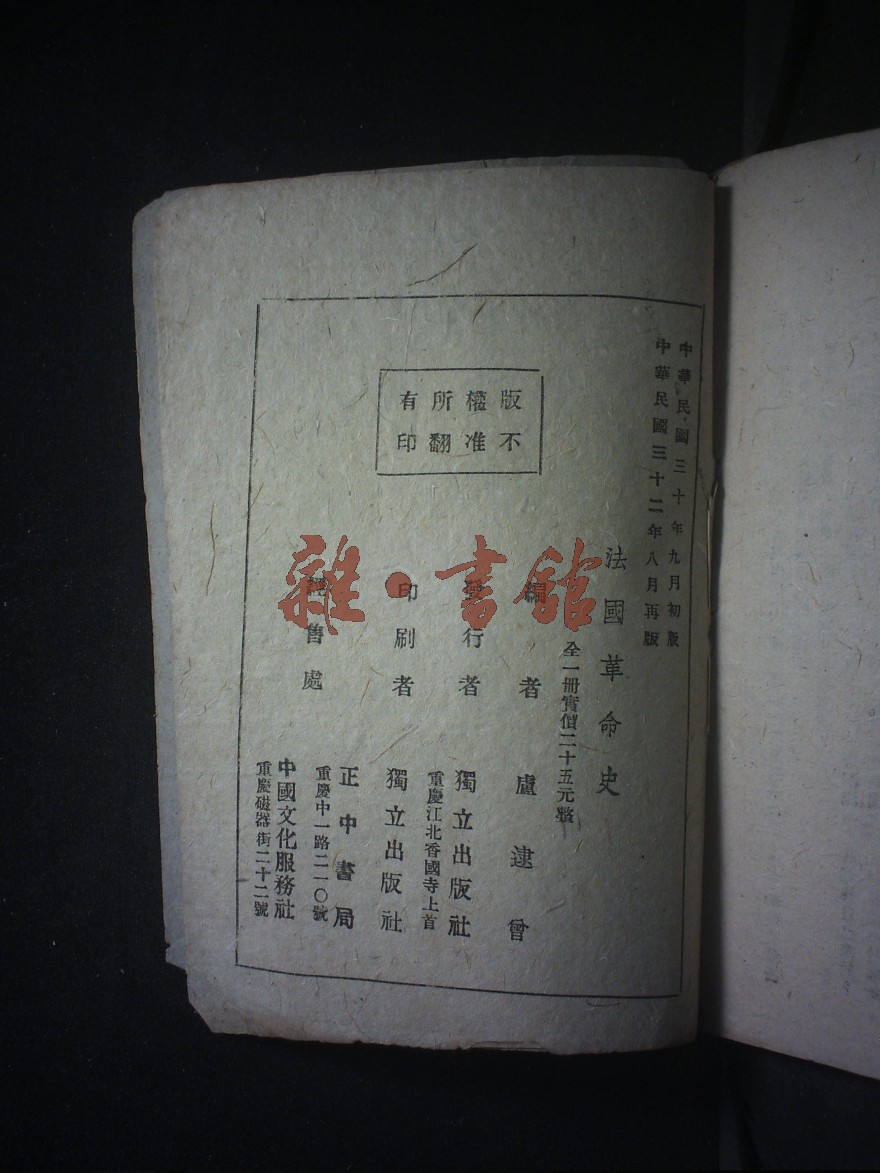 中華民國三十年九月初版
中華民國三十二年八月再版
版權所有
不准翻印
法國革命史
全一冊實價二十五元整
編者 盧逮曾
發行者 獨立出版社
重慶江北香國寺上首
印刷者 獨立出版社
經售處 正中書局
重慶中一路二一〇號
中國文化服務社
重慶磁器街二十二號
雜·書館